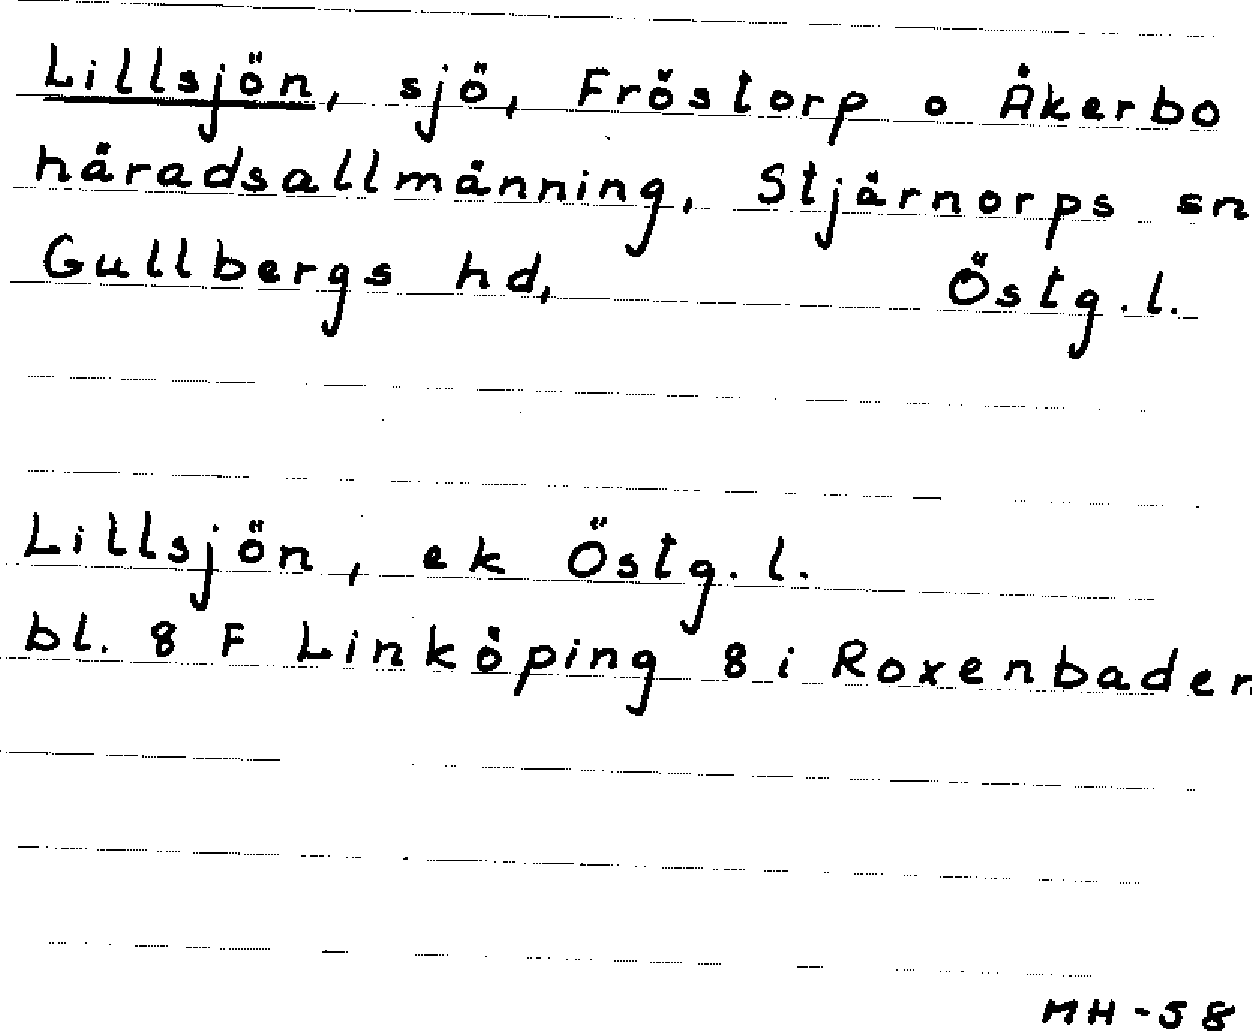 Lillsjön, sjö, Fröstorp o Åkerbo
häradsallmänning, Stjärnorps sn
Gullbergs hd, Östg.l.
Lillsjön, ek Östg.l.
bl. 8 F Linköping 8 i Roxenbaden
MH-58